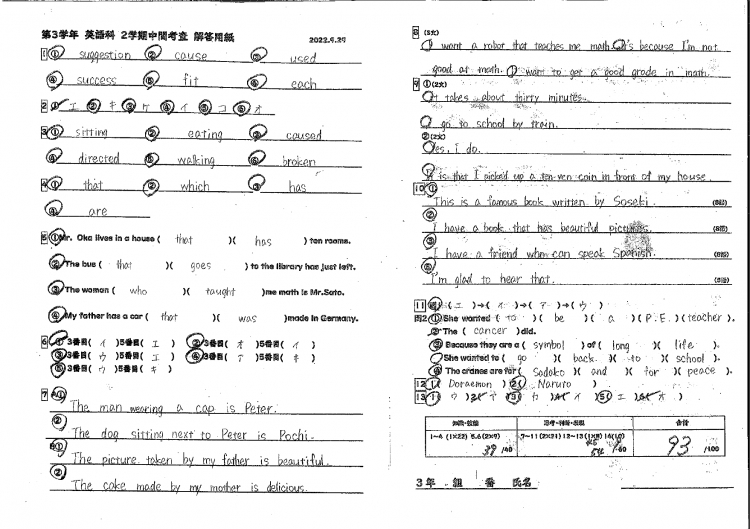 第3学年 英語科 2学期中間考査 解答用紙
2022.9.29
1 ① suggestion ② cause ③ used
④ success ⑤ fit ⑥ each
2 ① エ ② キ ③ ケ ④ イ ⑤ コ ⑥ オ
3 ① sitting ② eating ③ caused
④ directed ⑤ walking ⑥ broken
4 ① that ② which ③ has
④ are
5 ① Mr. Oka lives in a house ( that )( has ) ten rooms.
② The bus ( that )( goes ) to the library has just left.
③ The woman ( who )( taught ) me math is Mr.Sato.
④ My father has a car ( that )( was ) made in Germany.
6 ① 3番目( イ )5番目( エ ) ② 3番目( オ )5番目( イ )
③ 3番目( ウ )5番目( エ ) ④ 3番目( ア )5番目( キ )
⑤ 3番目( ウ )5番目( キ )
7 ① The man wearing a cap is Peter.
② The dog sitting next to Peter is Pochi.
① The picture taken by my father is beautiful.
② The cake made by my mother is delicious.
8 (3文)
I want a robot that teaches me math. It's because I'm not
good at math. I want to get a good grade in math.
9 ① (2文)
It takes about thirty minutes.
I go to school by train.
② (2文)
Yes, I do.
It is that I picked up a ten-yen coin in front of my house.
10 ①
This is a famous book written by Soseki.
②
I have a book that has beautiful pictures.
③
I have a friend who can speak Spanish.
I'm glad to hear that.
11 ( エ )→( イ )→( ア )→( ウ )
問2 ① She wanted ( to )( be )( a )( P.E. )( teacher ).
② The ( cancer ) did.
③ Because they are a ( symbol ) of ( long )( life ).
She wanted to ( go )( back )( to )( school ).
The cranes are for ( Sadako )( and )( for )( peace ).
12 1( Doraemon ) 2( Naruto )
13 1 ウ 2 ア 3 カ 4 イ 5 エ 6 オ
知識・技能 思考・判断・表現 合計
1~4 (1X22) 5.6 (2X9) 7~11 (2X21) 12~13 (1X8)
39 /40 54 /60 93 /100
3年 組 番 氏名